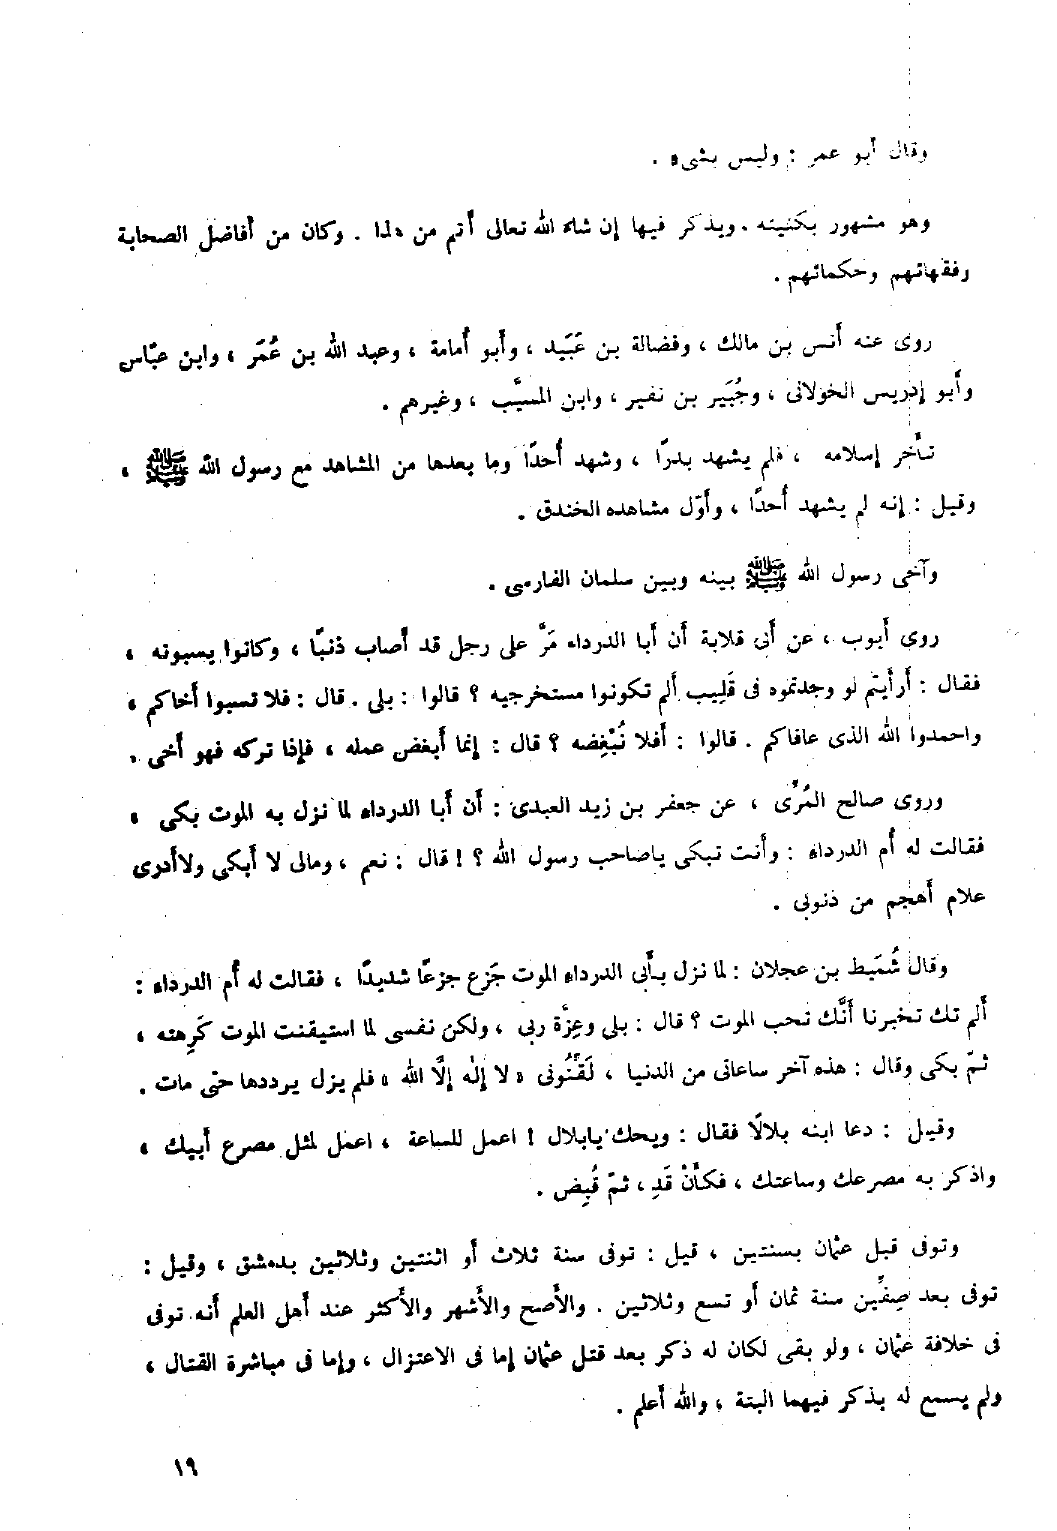 وقال أبو عمر : وليس بشىء .
وهو مشهور بكنيته . ويذكر فيها إن شاء الله تعالى أتم من هذا . وكان من أفاضل الصحابة
وفقهائهم وحكمائهم .
روى عنه أنس بن مالك ، وفضالة بن عَبَيد ، وأبو أمامة ، وعبد الله بن عُمَر ، وابن عبّاس
وأبو إدريس الخولانى ، وجُبَير بن نفير ، وابن المسيَّب ، وغيرهم .
تأخر إسلامه ، فلم يشهد بدرًا ، وشهد أُحدًا وما بعدها من المشاهد مع رسول الله ﷺ ،
وقيل : إنه لم يشهد أُحدًا ، وأوّل مشاهده الخندق .
وآخى رسول الله ﷺ بينه وبين سلمان الفارسى .
روى أيوب ، عن أبى قلابة أن أبا الدرداء مَرَّ على رجل قد أصاب ذنبًا ، وكانوا يسبونه ،
فقال : أرأيتم لو وجدتموه فى قَلِيب ألم تكونوا مستخرجيه ؟ قالوا : بلى . قال : فلا تسبوا أخاكم ،
واحمدوا الله الذى عافاكم . قالوا : أفلا نُبْغِضه ؟ قال : إنما أبغض عمله ، فإذا تركه فهو أخى .
وروى صالح المُرِّى ، عن جعفر بن زيد العبدى : أن أبا الدرداء لما نزل به الموت بكى ،
فقالت له أم الدرداء : وأنت تبكى ياصاحب رسول الله ؟ ! قال : نعم ، ومالى لا أبكى ولاأدرى
علام أهجم من ذنوبى .
وقال شُمَيط بن عجلان : لما نزل بأبى الدرداء الموت جَزع جزعًا شديدًا ، فقالت له أم الدرداء :
ألم تك تخبرنا أنَّك نحب الموت ؟ قال : بلى وعِزَّة ربى ، ولكن نفسى لما استيقنت الموت كَرِهته ،
ثمّ بكى وقال : هذه آخر ساعاتى من الدنيا ، لَقِّنُونى « لا إلٰه إلَّا الله » فلم يزل يرددها حتى مات .
وقيل : دعا ابنه بلالًا فقال : ويحك يابلال ! اعمل للساعة ، اعمل لمثل مصرع أبيك ،
واذكر به مصرعك وساعتك ، فكأنْ قَدِ ، ثمّ قُبِض .
وتوفى قبل عثمان بسنتين ، قيل : توفى سنة ثلاث أو اثنتين وثلاثين بدمشق ، وقيل :
توفى بعد صِفِّين سنة ثمان أو تسع وثلاثين . والأصح والأشهر والأكثر عند أهل العلم أنه توفى
فى خلافة عثمان ، ولو بقى لكان له ذكر بعد قتل عثمان إما فى الاعتزال ، وإما فى مباشرة القتال ،
ولم يسمع له بذكر فيهما البتة ، والله أعلم .
١٩